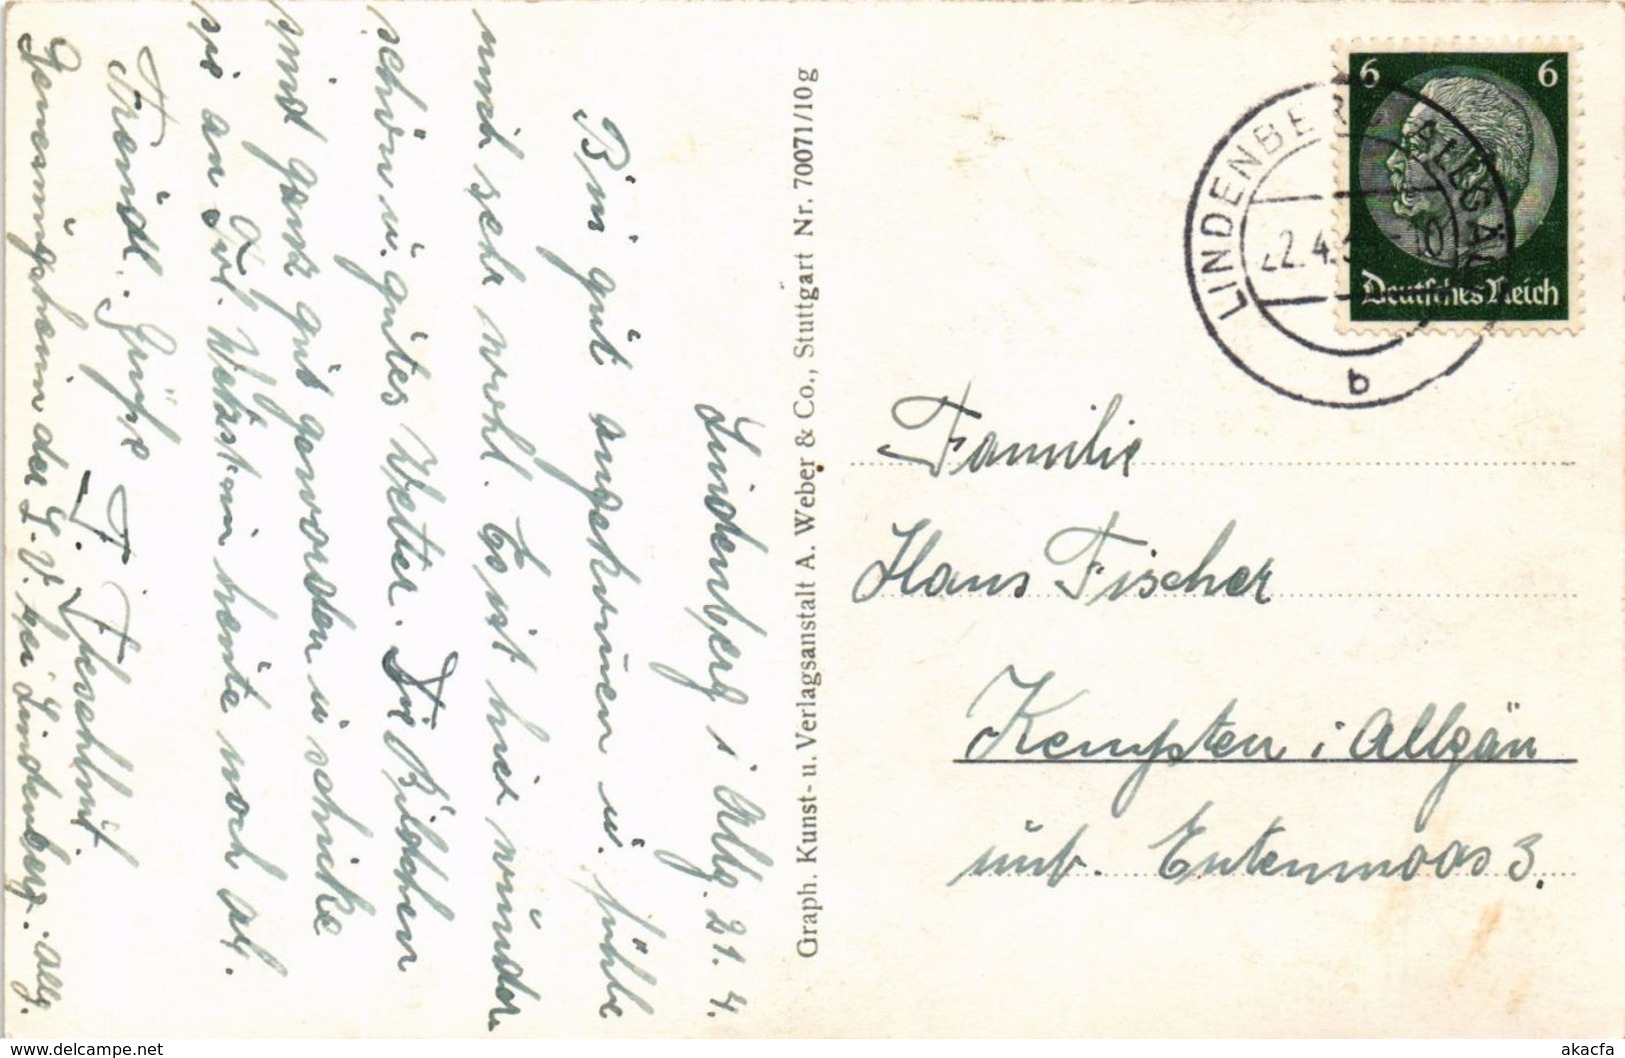 Lindenberg i. Allg. 21. 4.
Bin gut angekommen u. fühle
mich sehr wohl. Es ist hier wunder
schön u. gutes Wetter. Die Bildchen
sind ganz gut geworden u. schicke
sie an Frl. heute noch ab.
Freundl. Grüße
Genesungsheim der L. V. bei Lindenberg. Allg.
Graph. Kunst- u. Verlagsanstalt A. Weber & Co., Stuttgart Nr. 70071/10g
6 6
Deutsches Reich
LINDENBERG ALLGÄU
22.4.
b
Familie
Hans Fischer
Kempten i. Allgäu
unt. Entenmoos 3.
akacfa